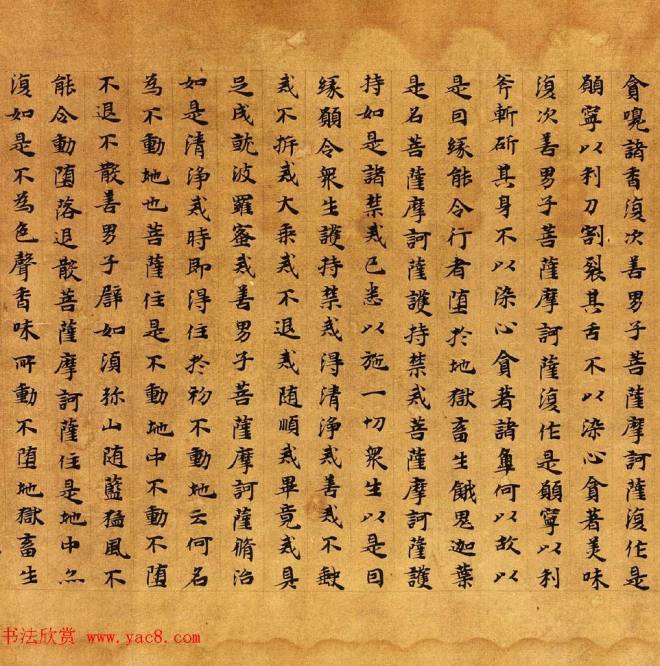 貪嗅諸香復次善男子菩薩摩訶薩復作是
願寧以利刀割裂其舌不以染心貪著美味
復次善男子菩薩摩訶薩復作是願寧以利
斧斬斫其身不以染心貪著諸觸何以故以
是因緣能令行者墮於地獄畜生餓鬼迦葉
是名菩薩摩訶薩護持禁戒菩薩摩訶薩護
持如是諸禁戒已悉以施一切眾生以是因
緣願令眾生護持禁戒得清淨戒善戒不缺
戒不析戒大乘戒不退戒隨順戒畢竟戒具
足成就波羅蜜戒善男子菩薩摩訶薩脩治
如是清淨戒時即得住於初不動地云何名
為不動地也菩薩住是不動地中不動不墮
不退不散善男子譬如須弥山隨藍猛風不
能令動墮落退散菩薩摩訶薩住是地中亦
復如是不為色聲香味所動不墮地獄畜生
书法欣赏 www.yac8.com